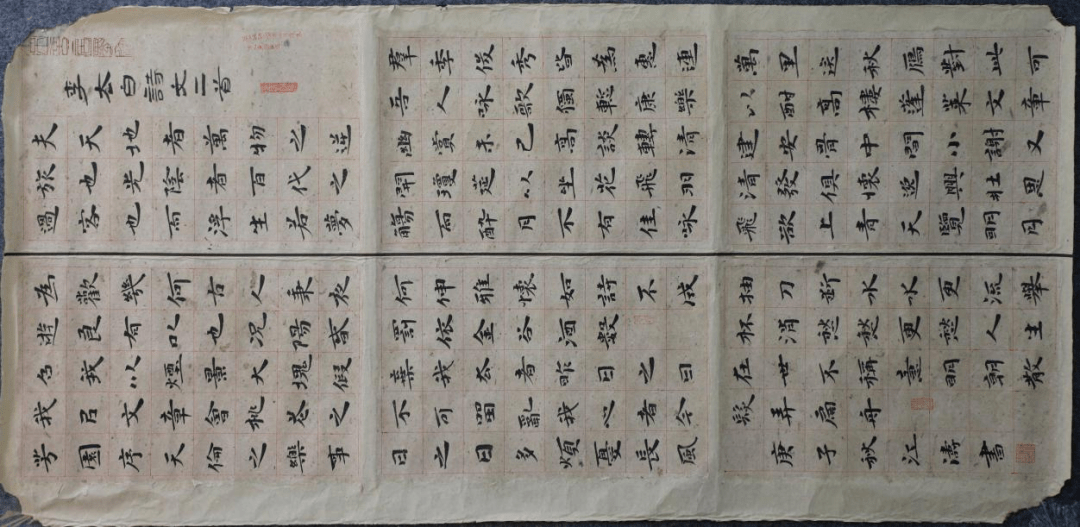 李太白詩文二首
夫天地者萬物之逆
旅也光陰者百代之
過客也而浮生若夢
為歡幾何古人秉夜
遊良有以也況陽春
召我以煙景大塊假
我㠯文章會桃花之
芳園序天倫之樂事
羣季俊秀皆為惠連
吾人詠歌獨慙康樂
幽賞未已高談轉清
開瓊筵以坐花飛羽
觴而醉月不有佳詠
何伸雅懷如詩不成
罰依金谷酒數
棄我去者昨日之日
不可畱亂我心者今
日之日多煩憂長風
萬里送秋鴈對此可
以酣高樓蓬萊文章
建安骨中間小謝又
清發俱懷逸興壯思
飛欲上青天覽明月
抽刀斷水水更流舉
杯消愁愁更愁人生
在世不稱意明朝散
髮弄扁舟
庚子秋江濤書